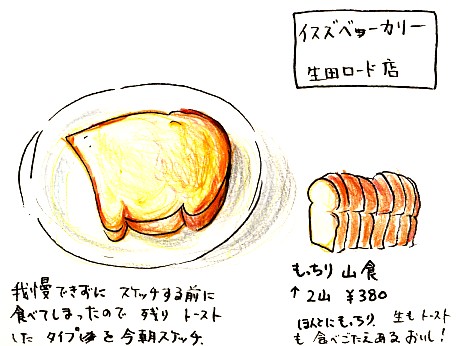 イスズベーカリー
生田ロード店
我慢できずに スケッチする前に
食べてしまったので 残り トースト
した タイプを 今朝スケッチ.
もっちり 山食
↑ 2山 ¥380
ほんとにもっちり. 生も トースト
も 食べごたえあるおいし!